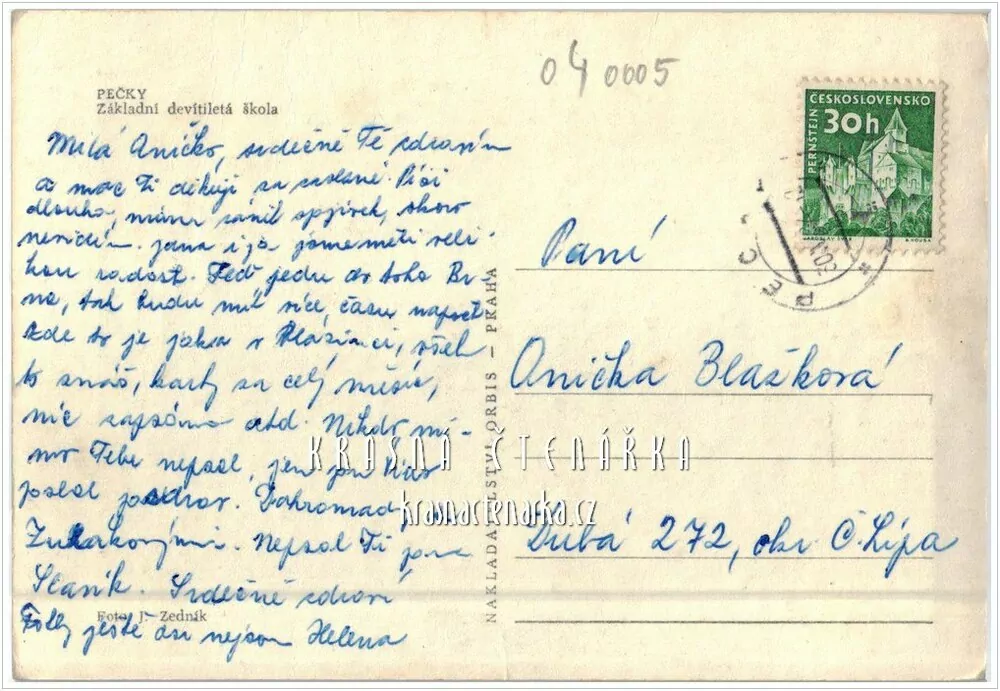 040005
PEČKY
Základní devítiletá škola
Milá Aničko, srdečně Tě zdravím
a moc Ti děkuji za zaslané. Píši
dlouho, mám
nevidím. Jana i já jsme měli veli-
kou radost. Teď jedu do toho Br
na, tak budu mít více času napsat
kde to je jako v, všek
to znáš, karty za celý měsíc,
nic zapsáno atd. Nikdo mi-
mo Tebe nepsal, jen pan
poslal pozdrav. Dohromady s
Nepsal Ti pan
Slaník. Srdečně zdraví
Fotky ještě asi nejsou Helena
Foto J. Zedník
NAKLADATELSTVÍ ORBIS – PRAHA
ČESKOSLOVENSKO
30h
PERNŠTEJN
PEČ
Paní
Anička Blažková
Dubá 272, okr. Č. Lípa
KRÁSNÁ ČTENÁŘKA
krasnactenarka.cz